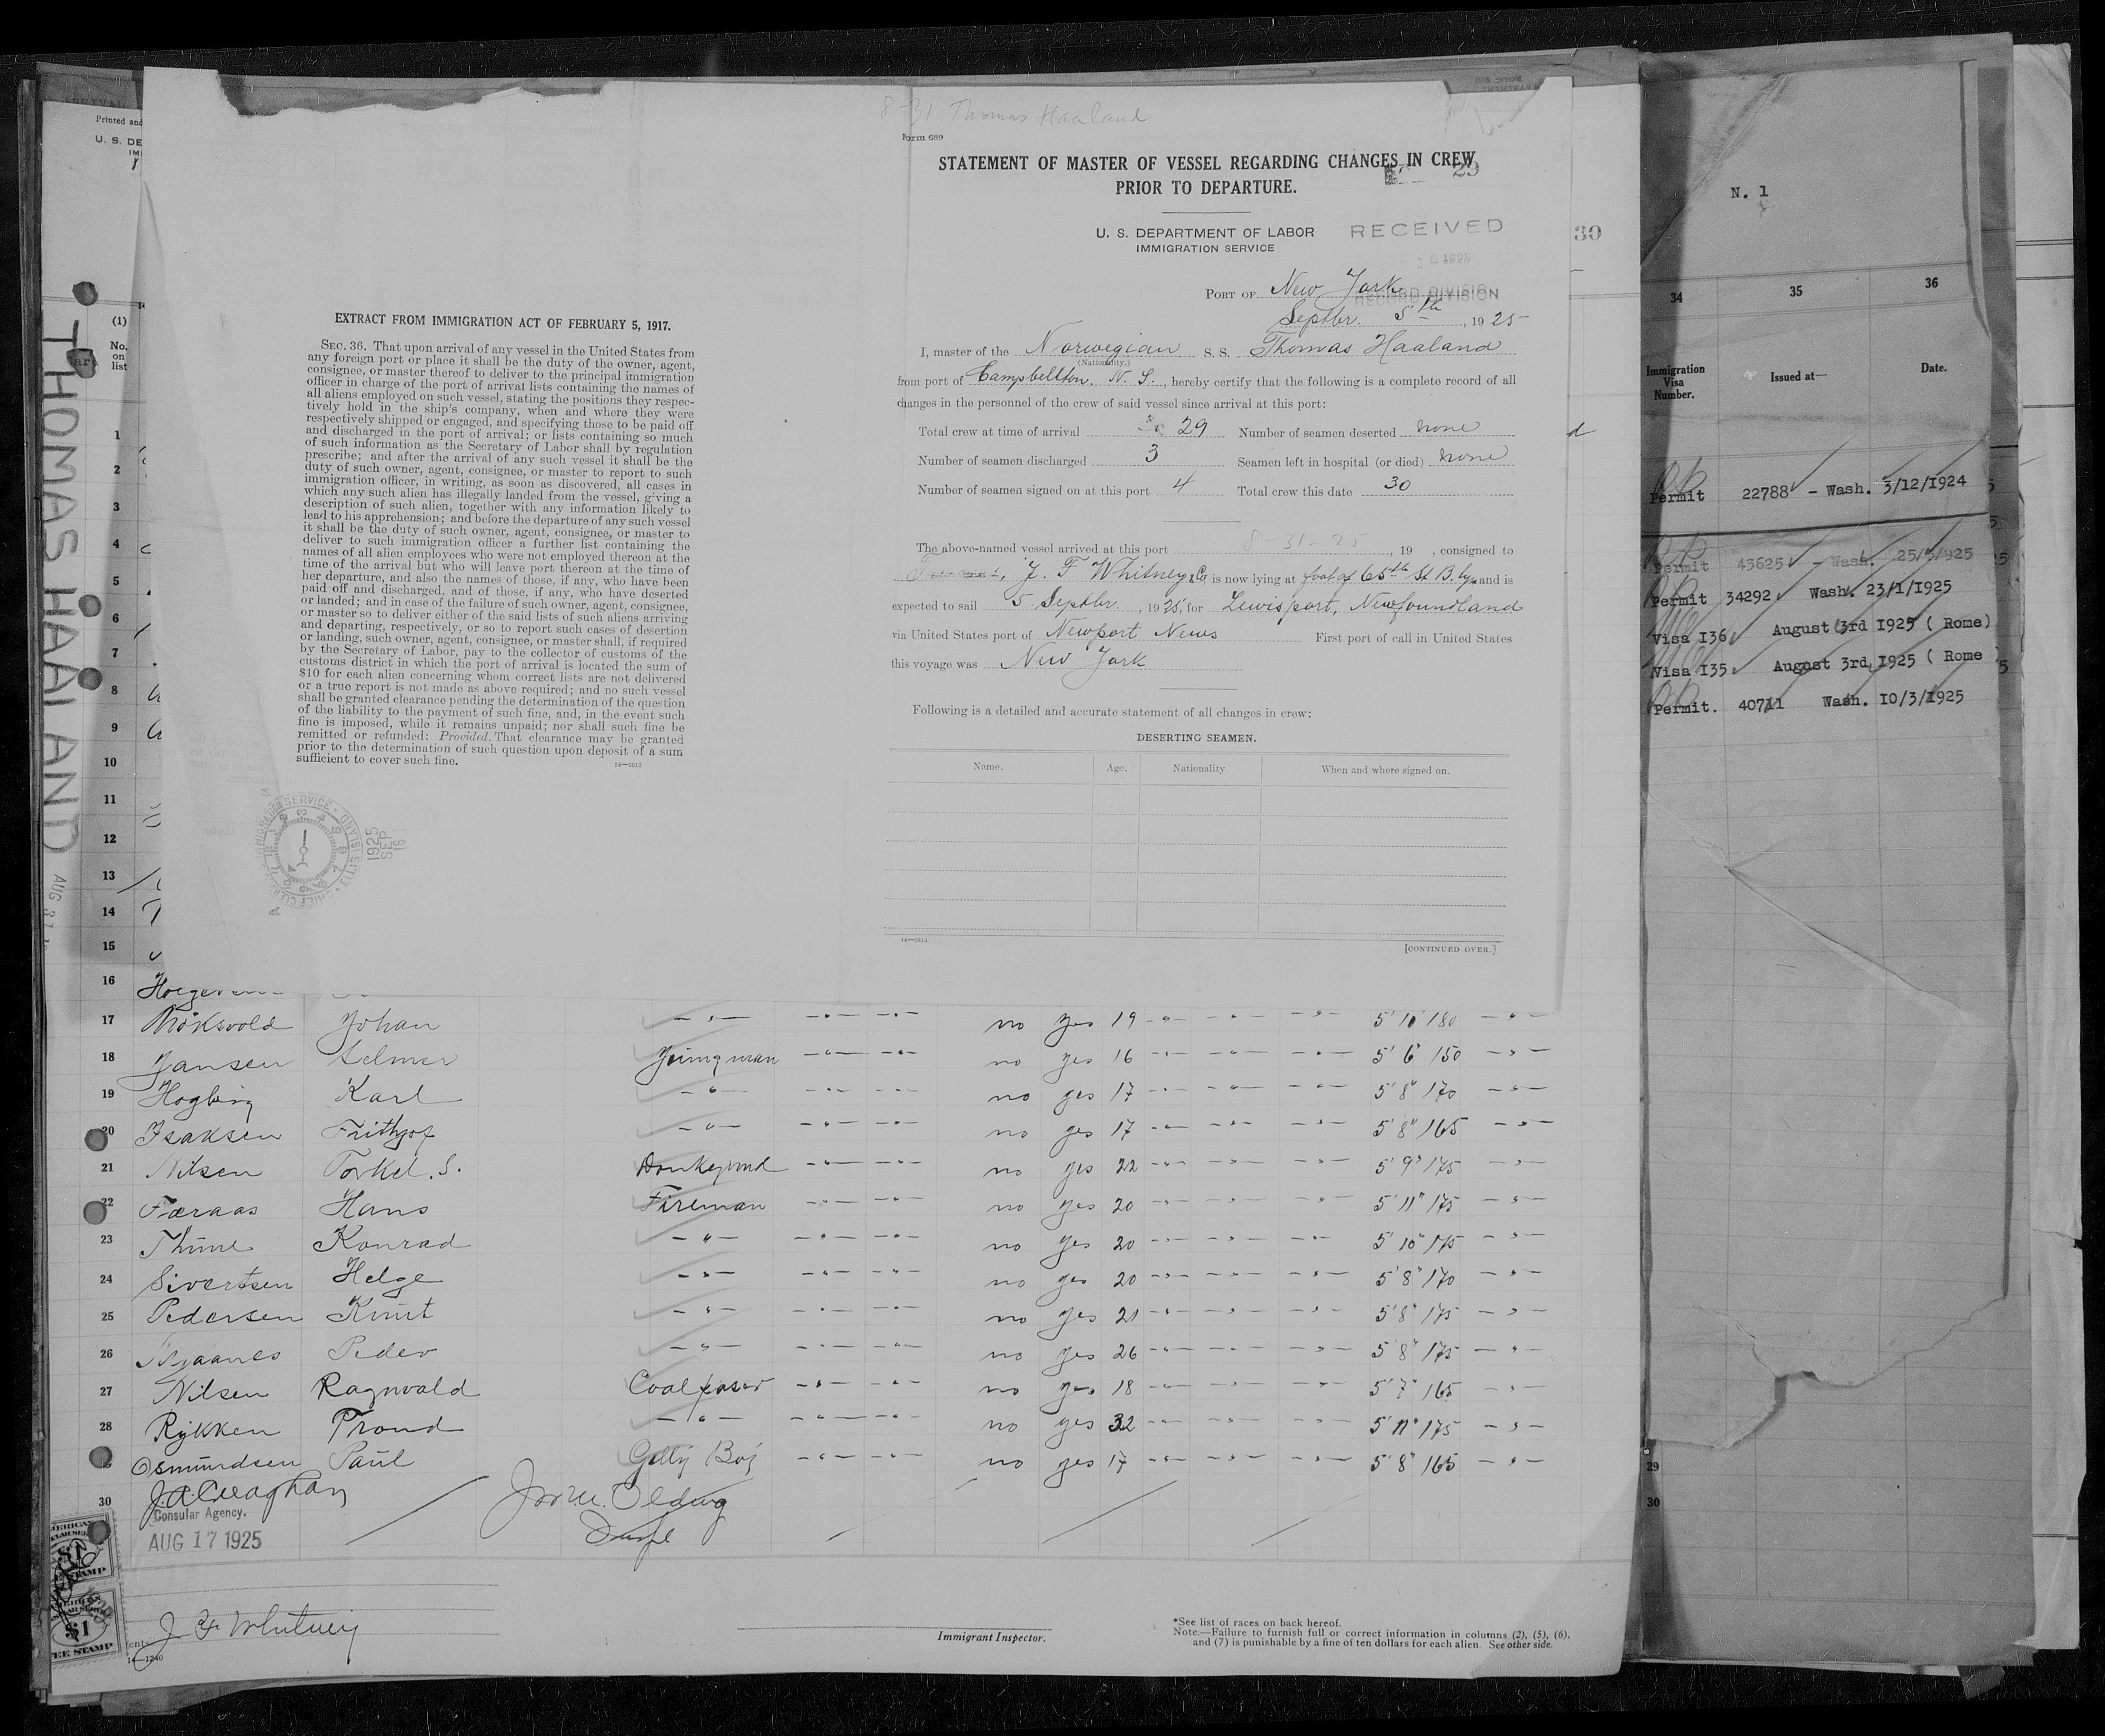 8-31 Thomas Haaland
Form 689
STATEMENT OF MASTER OF VESSEL REGARDING CHANGES IN CREW
PRIOR TO DEPARTURE.
29
U. S. DEPARTMENT OF LABOR
IMMIGRATION SERVICE
RECEIVED
RECORD DIVISION
PORT OF New York
Septbr. 5th, 1925
I, master of the Norwegian S. S. Thomas Haaland
(Nationality.)
from port of Campbellton. N. S., hereby certify that the following is a complete record of all
changes in the personnel of the crew of said vessel since arrival at this port:
Total crew at time of arrival 29 Number of seamen deserted none
Number of seamen discharged 3 Seamen left in hospital (or died) none
Number of seamen signed on at this port 4 Total crew this date 30
The above-named vessel arrived at this port 8-31-25, 19 , consigned to
J. F Whitney & Co is now lying at foot of 65th St B. lyn and is
expected to sail 5 Septbr., 1925, for Lewisport, Newfoundland
via United States port of Newport News First port of call in United States
this voyage was New York
Following is a detailed and accurate statement of all changes in crew:
DESERTING SEAMEN.
Name. Age. Nationality. When and where signed on.
14—1613
[CONTINUED OVER.]
EXTRACT FROM IMMIGRATION ACT OF FEBRUARY 5, 1917.
SEC. 36. That upon arrival of any vessel in the United States from
any foreign port or place it shall be the duty of the owner, agent,
consignee, or master thereof to deliver to the principal immigration
officer in charge of the port of arrival lists containing the names of
all aliens employed on such vessel, stating the positions they respec-
tively hold in the ship's company, when and where they were
respectively shipped or engaged, and specifying those to be paid off
and discharged in the port of arrival; or lists containing so much
of such information as the Secretary of Labor shall by regulation
prescribe; and after the arrival of any such vessel it shall be the
duty of such owner, agent, consignee, or master to report to such
immigration officer, in writing, as soon as discovered, all cases in
which any such alien has illegally landed from the vessel, giving a
description of such alien, together with any information likely to
lead to his apprehension; and before the departure of any such vessel
it shall be the duty of such owner, agent, consignee, or master to
deliver to such immigration officer a further list containing the
names of all alien employees who were not employed thereon at the
time of the arrival but who will leave port thereon at the time of
her departure, and also the names of those, if any, who have been
paid off and discharged, and of those, if any, who have deserted
or landed; and in case of the failure of such owner, agent, consignee,
or master so to deliver either of the said lists of such aliens arriving
and departing, respectively, or so to report such cases of desertion
or landing, such owner, agent, consignee, or master shall, if required
by the Secretary of Labor, pay to the collector of customs of the
customs district in which the port of arrival is located the sum of
$10 for each alien concerning whom correct lists are not delivered
or a true report is not made as above required; and no such vessel
shall be granted clearance pending the determination of the question
of the liability to the payment of such fine, and, in the event such
fine is imposed, while it remains unpaid; nor shall such fine be
remitted or refunded: Provided, That clearance may be granted
prior to the determination of such question upon deposit of a sum
sufficient to cover such fine.
14—1613
1925
SEP
16
Printed and
U. S. DE
IMI
(1)
No.
on
list
THOMAS HAALAND
AUG 31
1
2
3
4
5
6
7
8
9
10
11
12
13
14
15
16
17 Johan no yes 19 5' 10" 180
18 Jansen Selmer Youngman no yes 16 5' 6" 150
19 Karl no yes 17 5' 8" 170
20 Isaksen Frithjof no yes 17 5' 8" 165
21 Nilsen Torkel. S. no yes 22 5' 9" 175
22 Færaas Hans Fireman no yes 20 5' 11" 175
23 Thune Konrad no yes 20 5' 10" 175
24 Sivertsen Helge no yes 20 5' 8" 170
25 Pedersen Knut no yes 21 5' 8" 175
26 Peder no yes 26 5' 8" 175
27 Nilsen Ragnvald Coalpaser no yes 18 5' 7" 165
28 Rykken Trond no yes 32 5' 11" 175
Osmundsen Paul Gally Boy no yes 17 5' 8" 165
30
Consular Agency.
AUG 17 1925
J. F. Whitney
14—1240
Immigrant Inspector.
*See list of races on back hereof.
Note.—Failure to furnish full or correct information in columns (2), (5), (6),
and (7) is punishable by a fine of ten dollars for each alien. See other side.
30
N. 1
34 35 36
Immigration
Visa
Number.
Issued at—
Date.
Permit 22788 - Wash. 3/12/1924
Permit 43625 - Wash. 25/5/925
Permit 34292 Wash. 23/1/1925
Visa I36 August 3rd 1925 ( Rome)
Visa I35 August 3rd 1925 ( Rome
Permit. 40711 Wash. 10/3/1925
29
30